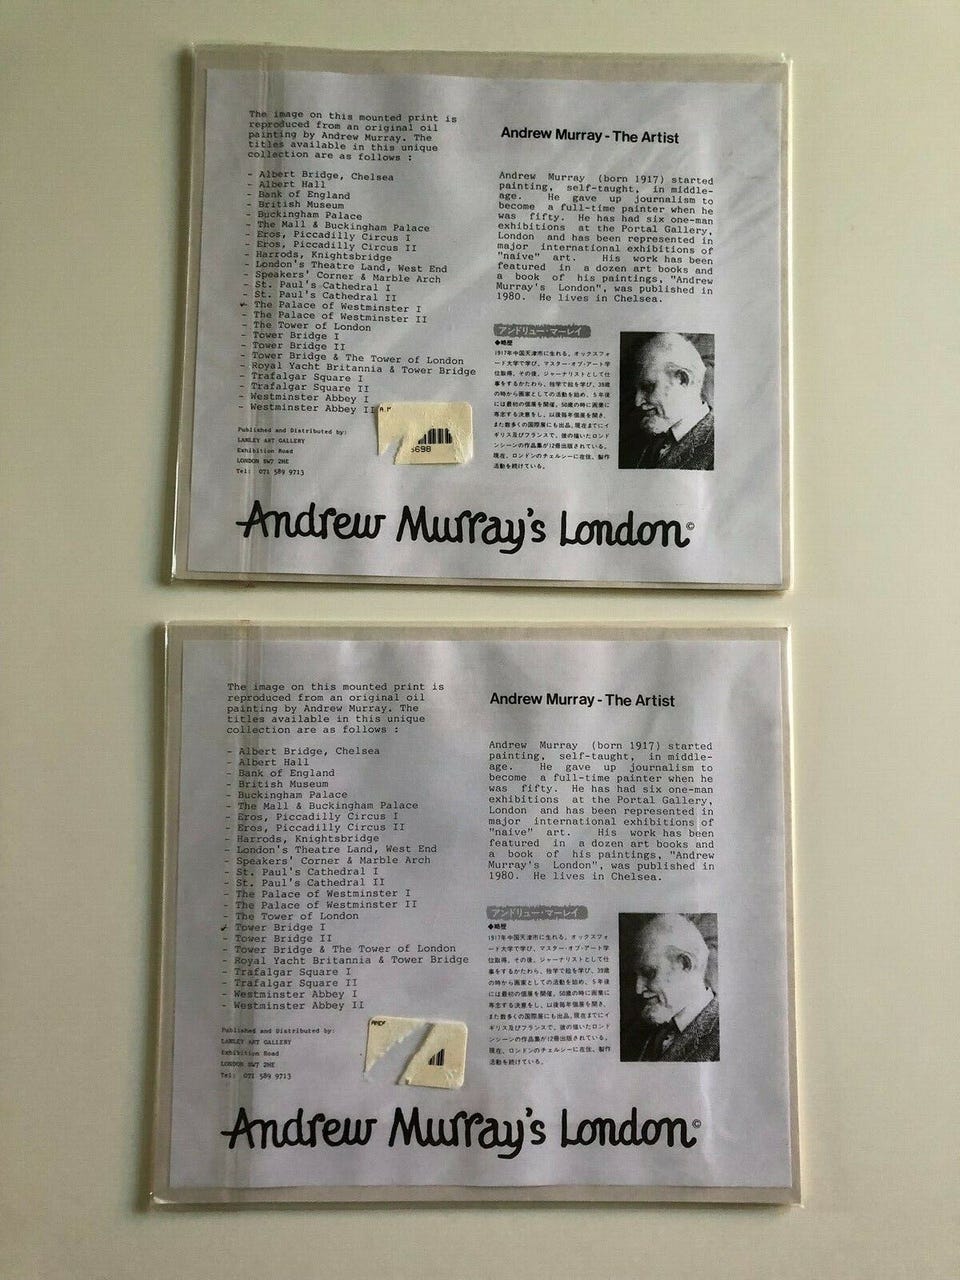 The image on this mounted print is
reproduced from an original oil
painting by Andrew Murray. The
titles available in this unique
collection are as follows :
- Albert Bridge, Chelsea
- Albert Hall
- Bank of England
- British Museum
- Buckingham Palace
- The Mall & Buckingham Palace
- Eros, Piccadilly Circus I
- Eros, Piccadilly Circus II
- Harrods, Knightsbridge
- London's Theatre Land, West End
- Speakers' Corner & Marble Arch
- St. Paul's Cathedral I
- St. Paul's Cathedral II
- The Palace of Westminster I
- The Palace of Westminster II
- The Tower of London
- Tower Bridge I
- Tower Bridge II
- Tower Bridge & The Tower of London
- Royal Yacht Britannia & Tower Bridge
- Trafalgar Square I
- Trafalgar Square II
- Westminster Abbey I
- Westminster Abbey II
Published and Distributed by:
LAMLEY ART GALLERY
Exhibition Road
LONDON SW7 2HE
Tel: 071 589 9713
5698
Andrew Murray - The Artist
Andrew Murray (born 1917) started
painting, self-taught, in middle-
age. He gave up journalism to
become a full-time painter when he
was fifty. He has had six one-man
exhibitions at the Portal Gallery,
London and has been represented in
major international exhibitions of
"naive" art. His work has been
featured in a dozen art books and
a book of his paintings, "Andrew
Murray's London", was published in
1980. He lives in Chelsea.
アンドリュー・マーレイ
◆略歴
1917年中国天津市に生れる。オックスフォ
ード大学で学び、マスター・オブ・アート学
位取得。その後、ジャーナリストとして仕
事をするかたわら、独学で絵を学び、39歳
の時から画家としての活動を始め、5年後
には最初の個展を開催。50歳の時に画業に
専念する決意をし、以後毎年個展を開き、
また数多くの国際展にも出品。現在までにイ
ギリス及びフランスで、彼の描いたロンド
ンシーンの作品集が12冊出版されている。
現在、ロンドンのチェルシーに在住、製作
活動を続けている。
Andrew Murray's London©
The image on this mounted print is
reproduced from an original oil
painting by Andrew Murray. The
titles available in this unique
collection are as follows :
- Albert Bridge, Chelsea
- Albert Hall
- Bank of England
- British Museum
- Buckingham Palace
- The Mall & Buckingham Palace
- Eros, Piccadilly Circus I
- Eros, Piccadilly Circus II
- Harrods, Knightsbridge
- London's Theatre Land, West End
- Speakers' Corner & Marble Arch
- St. Paul's Cathedral I
- St. Paul's Cathedral II
- The Palace of Westminster I
- The Palace of Westminster II
- The Tower of London
- Tower Bridge I
- Tower Bridge II
- Tower Bridge & The Tower of London
- Royal Yacht Britannia & Tower Bridge
- Trafalgar Square I
- Trafalgar Square II
- Westminster Abbey I
- Westminster Abbey II
Published and Distributed by:
LAMLEY ART GALLERY
Exhibition Road
LONDON SW7 2HE
Tel: 071 589 9713
Andrew Murray - The Artist
Andrew Murray (born 1917) started
painting, self-taught, in middle-
age. He gave up journalism to
become a full-time painter when he
was fifty. He has had six one-man
exhibitions at the Portal Gallery,
London and has been represented in
major international exhibitions of
"naive" art. His work has been
featured in a dozen art books and
a book of his paintings, "Andrew
Murray's London", was published in
1980. He lives in Chelsea.
アンドリュー・マーレイ
◆略歴
1917年中国天津市に生れる。オックスフォ
ード大学で学び、マスター・オブ・アート学
位取得。その後、ジャーナリストとして仕
事をするかたわら、独学で絵を学び、39歳
の時から画家としての活動を始め、5年後
には最初の個展を開催。50歳の時に画業に
専念する決意をし、以後毎年個展を開き、
また数多くの国際展にも出品。現在までにイ
ギリス及びフランスで、彼の描いたロンド
ンシーンの作品集が12冊出版されている。
現在、ロンドンのチェルシーに在住、製作
活動を続けている。
Andrew Murray's London©